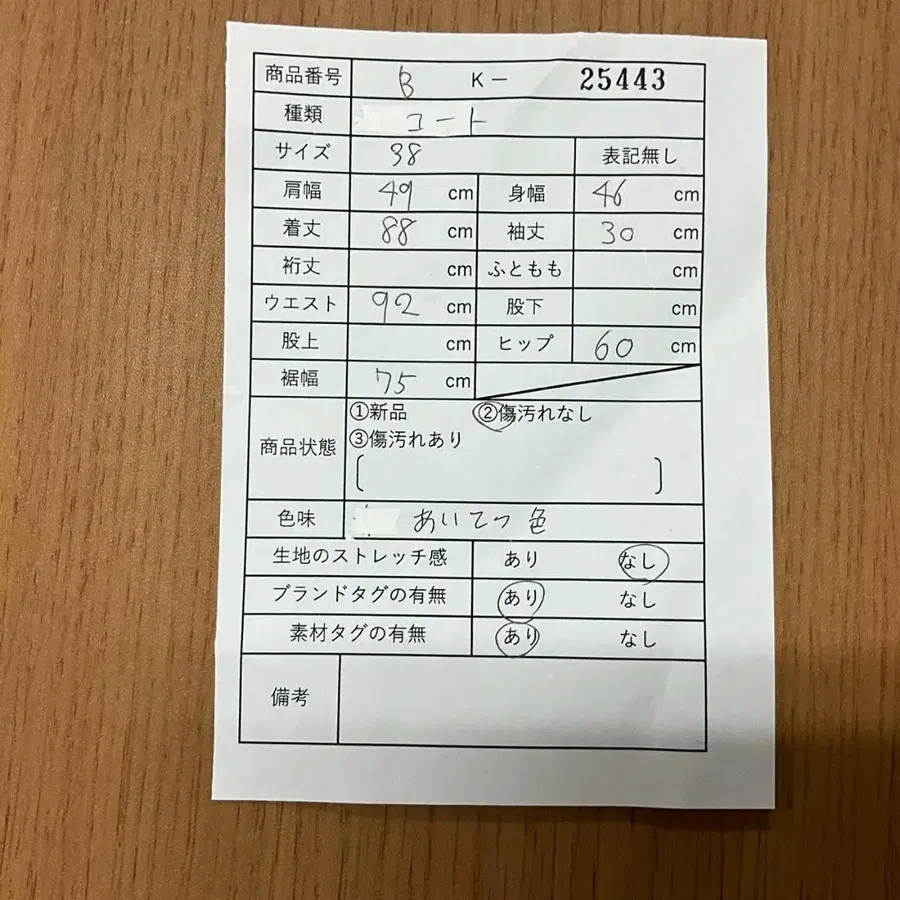 商品番号 B K－ 25443
種類 コート
サイズ 38 表記無し
肩幅 49 cm 身幅 46 cm
着丈 88 cm 袖丈 30 cm
裄丈 cm ふともも cm
ウエスト 92 cm 股下 cm
股上 cm ヒップ 60 cm
裾幅 75 cm
商品状態 ①新品 ②傷汚れなし
③傷汚れあり
[ ]
色味 あいてつ色
生地のストレッチ感 あり なし
ブランドタグの有無 あり なし
素材タグの有無 あり なし
備考